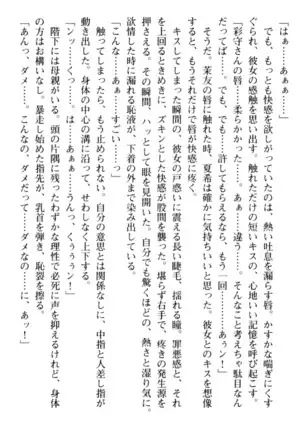 「はぁ、あぁ……はぁぁ……」
でも、もっとも快感を欲しがっていたのは、熱い吐息を漏らす唇。かすかな喘ぎにくす
ぐられ、彼女の感触を思い出す。触れただけの短いキスの、心地いい記憶を呼び起こす。
「彩守さんの唇……柔らかかった……。あぁ……違う……。そんなこと考えちゃ駄目なん
だってば……。でも……でも……許してもらえるなら、もう一回……あぁン！」
そうだ。茉友の唇に触れた時、夏希は確かに気持ちいいと思った。彼女とのキスを想像
すると、もうそれだけで唇が快感に疼く。
キスしてしまった瞬間の、彼女の戸惑いに震える長い睫毛、揺れる瞳。罪悪感と、それ
を上回るときめきに、ズキンとした快感が股間を襲った。堪らず右手で、疼きの発生源を
押さえる。その瞬間、ハッとして眼を見開いた。自分でも驚くほどの、熱さと湿り気に。
「こんな……あぁ……すごい……っ」
欲情した時に漏れる恥液が、下着の外まで染み出している。
だめだと思ったら、もう止められない。自分の意思とは関係なしに、中指と人差し指が
動き出した。身体の中心の溝に沿って、せわしなく上下する。
「ンッ……くうっ……。はぁ、あぁ……うんっ、くうぅぅンッ！」
階下には母親がいる。頭の片隅に残ったわずかな理性で必死に声を抑えるけれど、身体
の方はお構いなし。暴走し始めた指先が、乳首を弾き、恥裂を擦る。
「あんっ、ダメ……。こんなの、ダメだって……ダメなの……に、あッ！」